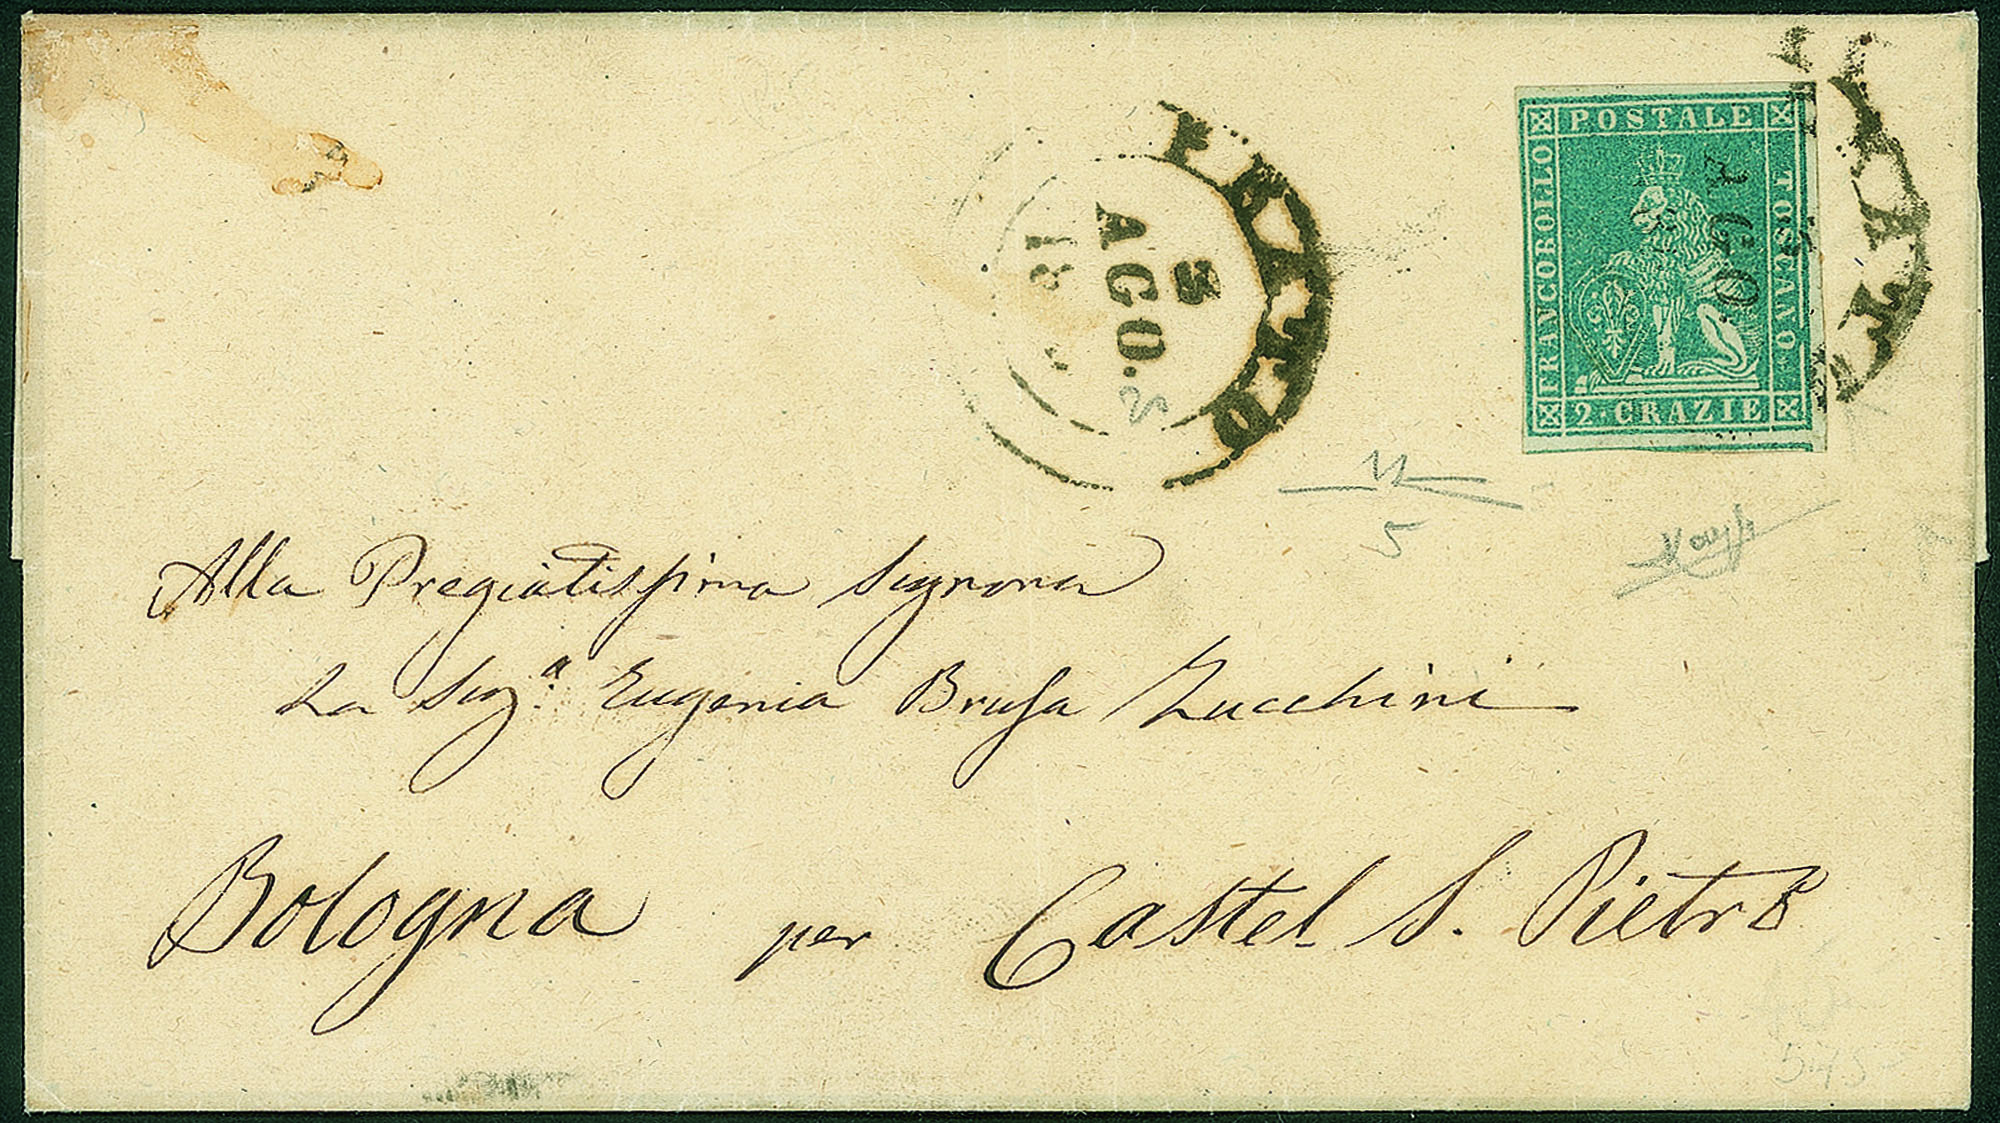 PRATO
3
AGO.
18
POSTALE
FRANCOBOLLO
TOSCANO
2·CRAZIE
AGO.
5
Alla Pregiatissima Signora
La Sig.ª Eugenia Brusa Zucchini
Bologna per Castel S. Pietro
545